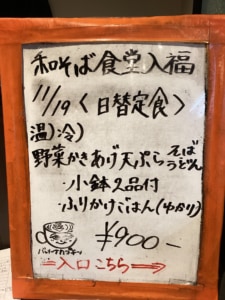 和そば食堂入福
11/19〈日替定食〉
温)冷)
野菜かきあげ天ぷらそばうどん
・小鉢2品付
・ふりかけごはん(ゆかり)
¥900-
入口こちら→